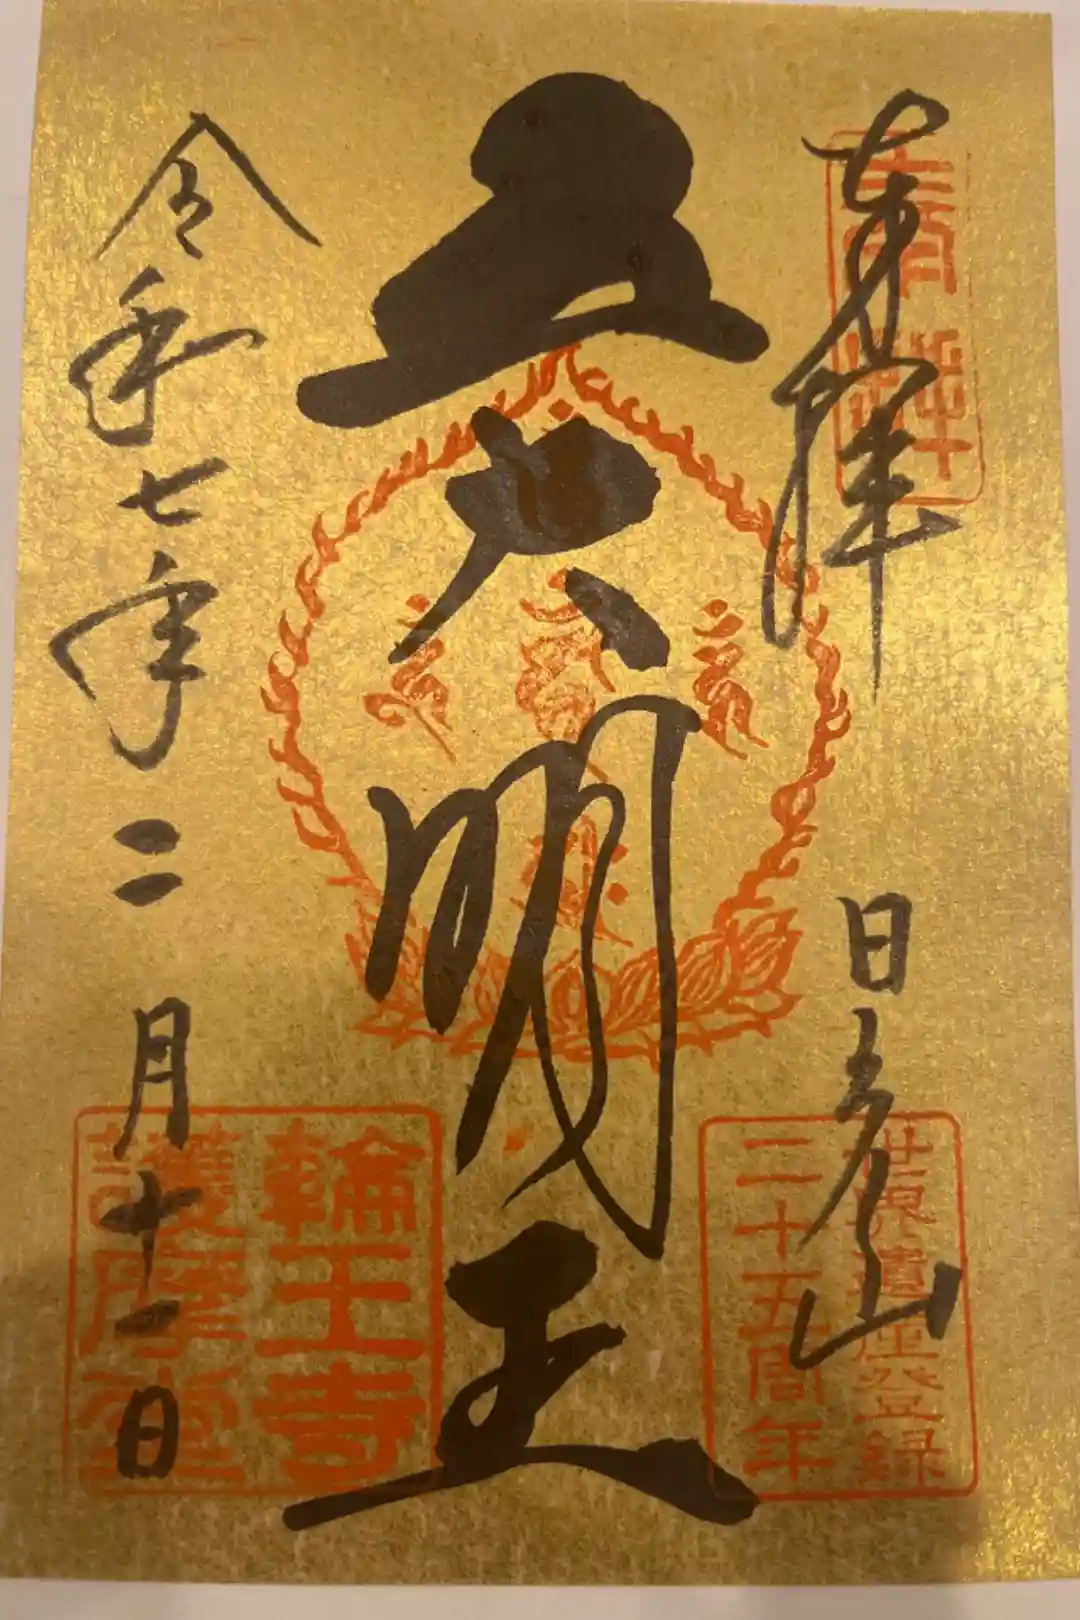 奉拝
日光山
五大明王
令和七年二月十一日
奉拝
世界遺産登録
二十五周年
輪王寺
護摩堂